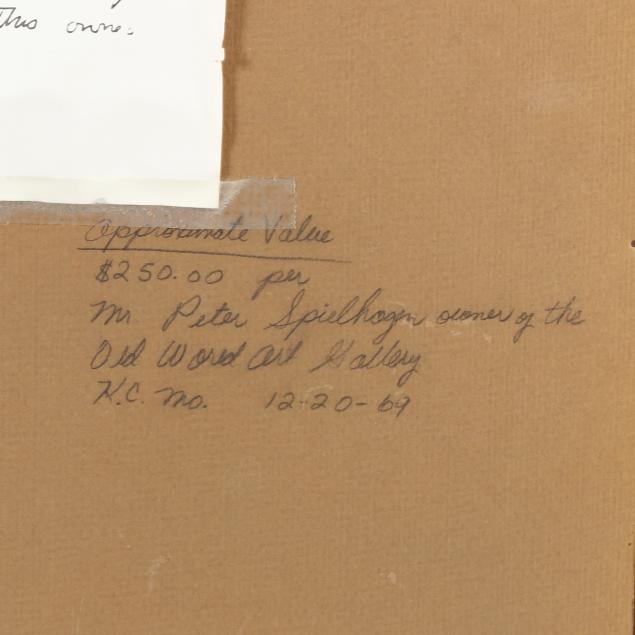 This owne.
Approximate Value
$250.00 per
Mr. Peter Spielhagen owner of the
Old Word Art Gallery
K.C. Mo. 12-20-69